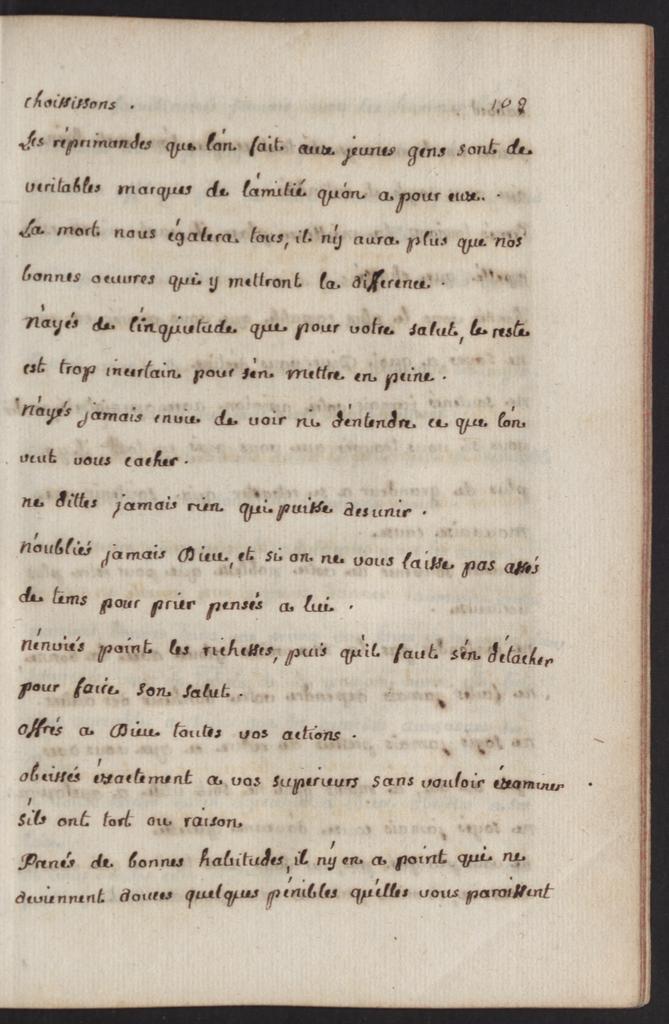 choississons . 102
Les réprimandes que l'on fait aux jeunes gens sont de
veritables marques de l'amitié qu'on a pour eux .
La mort nous égalera tous, il n'y aura plus que nos
bonnes oeuvres qui y mettront la difference .
N'ayés de l'inquietude que pour votre salut, le reste
est trop incertain pour s'en mettre en peine .
N'ayés jamais envie de voir ni d'entendre ce que l'on
veut vous cacher .
ne dittes jamais rien qui puisse desunir .
N'oubliés jamais Dieu, et si on ne vous laisse pas assés
de tems pour prier pensés a lui .
N'enviés point les richesses, puis qu'il faut s'en détacher
pour faire son salut .
offrés a Dieu toutes vos actions .
obeissés éxactement a vos superieurs sans vouloir éxaminer
s'ils ont tort ou raison
Prenés de bonnes habitudes, il n'y en a point qui ne
deviennent douces quelques pénibles qu'elles vous paroissent